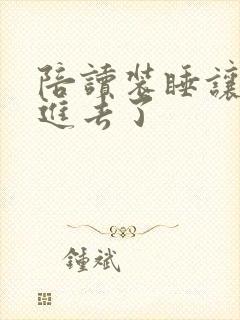 陪讀装睡讓
進去了
鍾斌